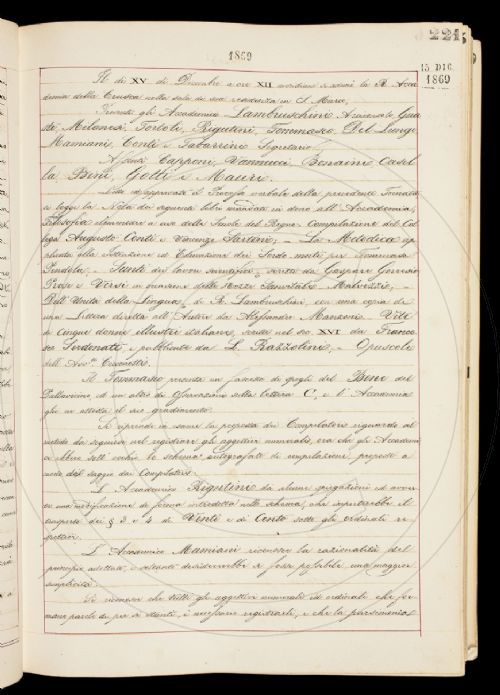 221
1869
15 DIC.
1869
Il dì XV di Dicembre a ore XII meridiane si adunò la R. Acca-
demia della Crusca nella sala di sua residenza in S. Marco.
Presenti gli Accademici Lambruschini Arciconsolo, Gua-
sti, Milanesi, Tortoli, Rigutini, Tommaseo, Del Lungo,
Mamiani, Conti e Tabarrini Segretario.
Assenti Capponi, Vannucci, Bonaini, Casel-
la, Bini, Gotti e Mauri.
Letto ed approvato il Processo verbale della precedente Tornata
si legge la Nota dei seguenti libri mandati in dono all'Accademia,
Filosofia elementare a uso delle Scuole del Regno. Compilazione del Col-
lega Augusto Conti e Vincenzo Sartini, — La Metodica ap-
plicata alla Istruzione ed Educazione dei Sordo-muti per Tommaso
Pendola, — Sunto dei lavori scientifici scritto da Gaspare Gorresio
Prose e Versi in occasione delle Nozze Malvezzi, —
Dell'Unità della Lingua di R. Lambruschini, con una copia di
una Lettera diretta all'Autore da Alessandro Manzoni. Vite
di Cinque donne illustri italiane, scritte nel sec. XVI da France-
sco Serdonati e pubblicate da L. Razzolini, — Opuscoli
dell'Avv.
Il Tommaseo presenta un fascio di spogli del Bini del
Pallavicino, ed un altro di Giunte sulla lettera C, e l'Accademia
gliene attesta il suo gradimento.
Si riprende in esame la proposta dei Compilatori riguardo al
metodo da seguire nel registrare gli aggettivi numerali, ora che gli Accademi-
ci ebbero sott'occhio lo schema autografato di compilazione proposto a
modo di saggio dai Compilatori.
L'Accademico Rigutini dà alcune spiegazioni ed avver-
te una modificazione di forma introdotta nello schema, che importerebbe il
trasporto dei § 3 e 4 di Venti e di Cento sotto gli ordinali ri-
spettivi.
L'Accademico Mamiani riconosce la razionalità del
principio adottato, e soltanto desidererebbe se fosse possibile una maggior
semplicità.
Si riconosce che tutti gli aggettivi numerali ed ordinali che for-
mano parole di per sé stanti, è necessario registrarli, e che la parsimonia